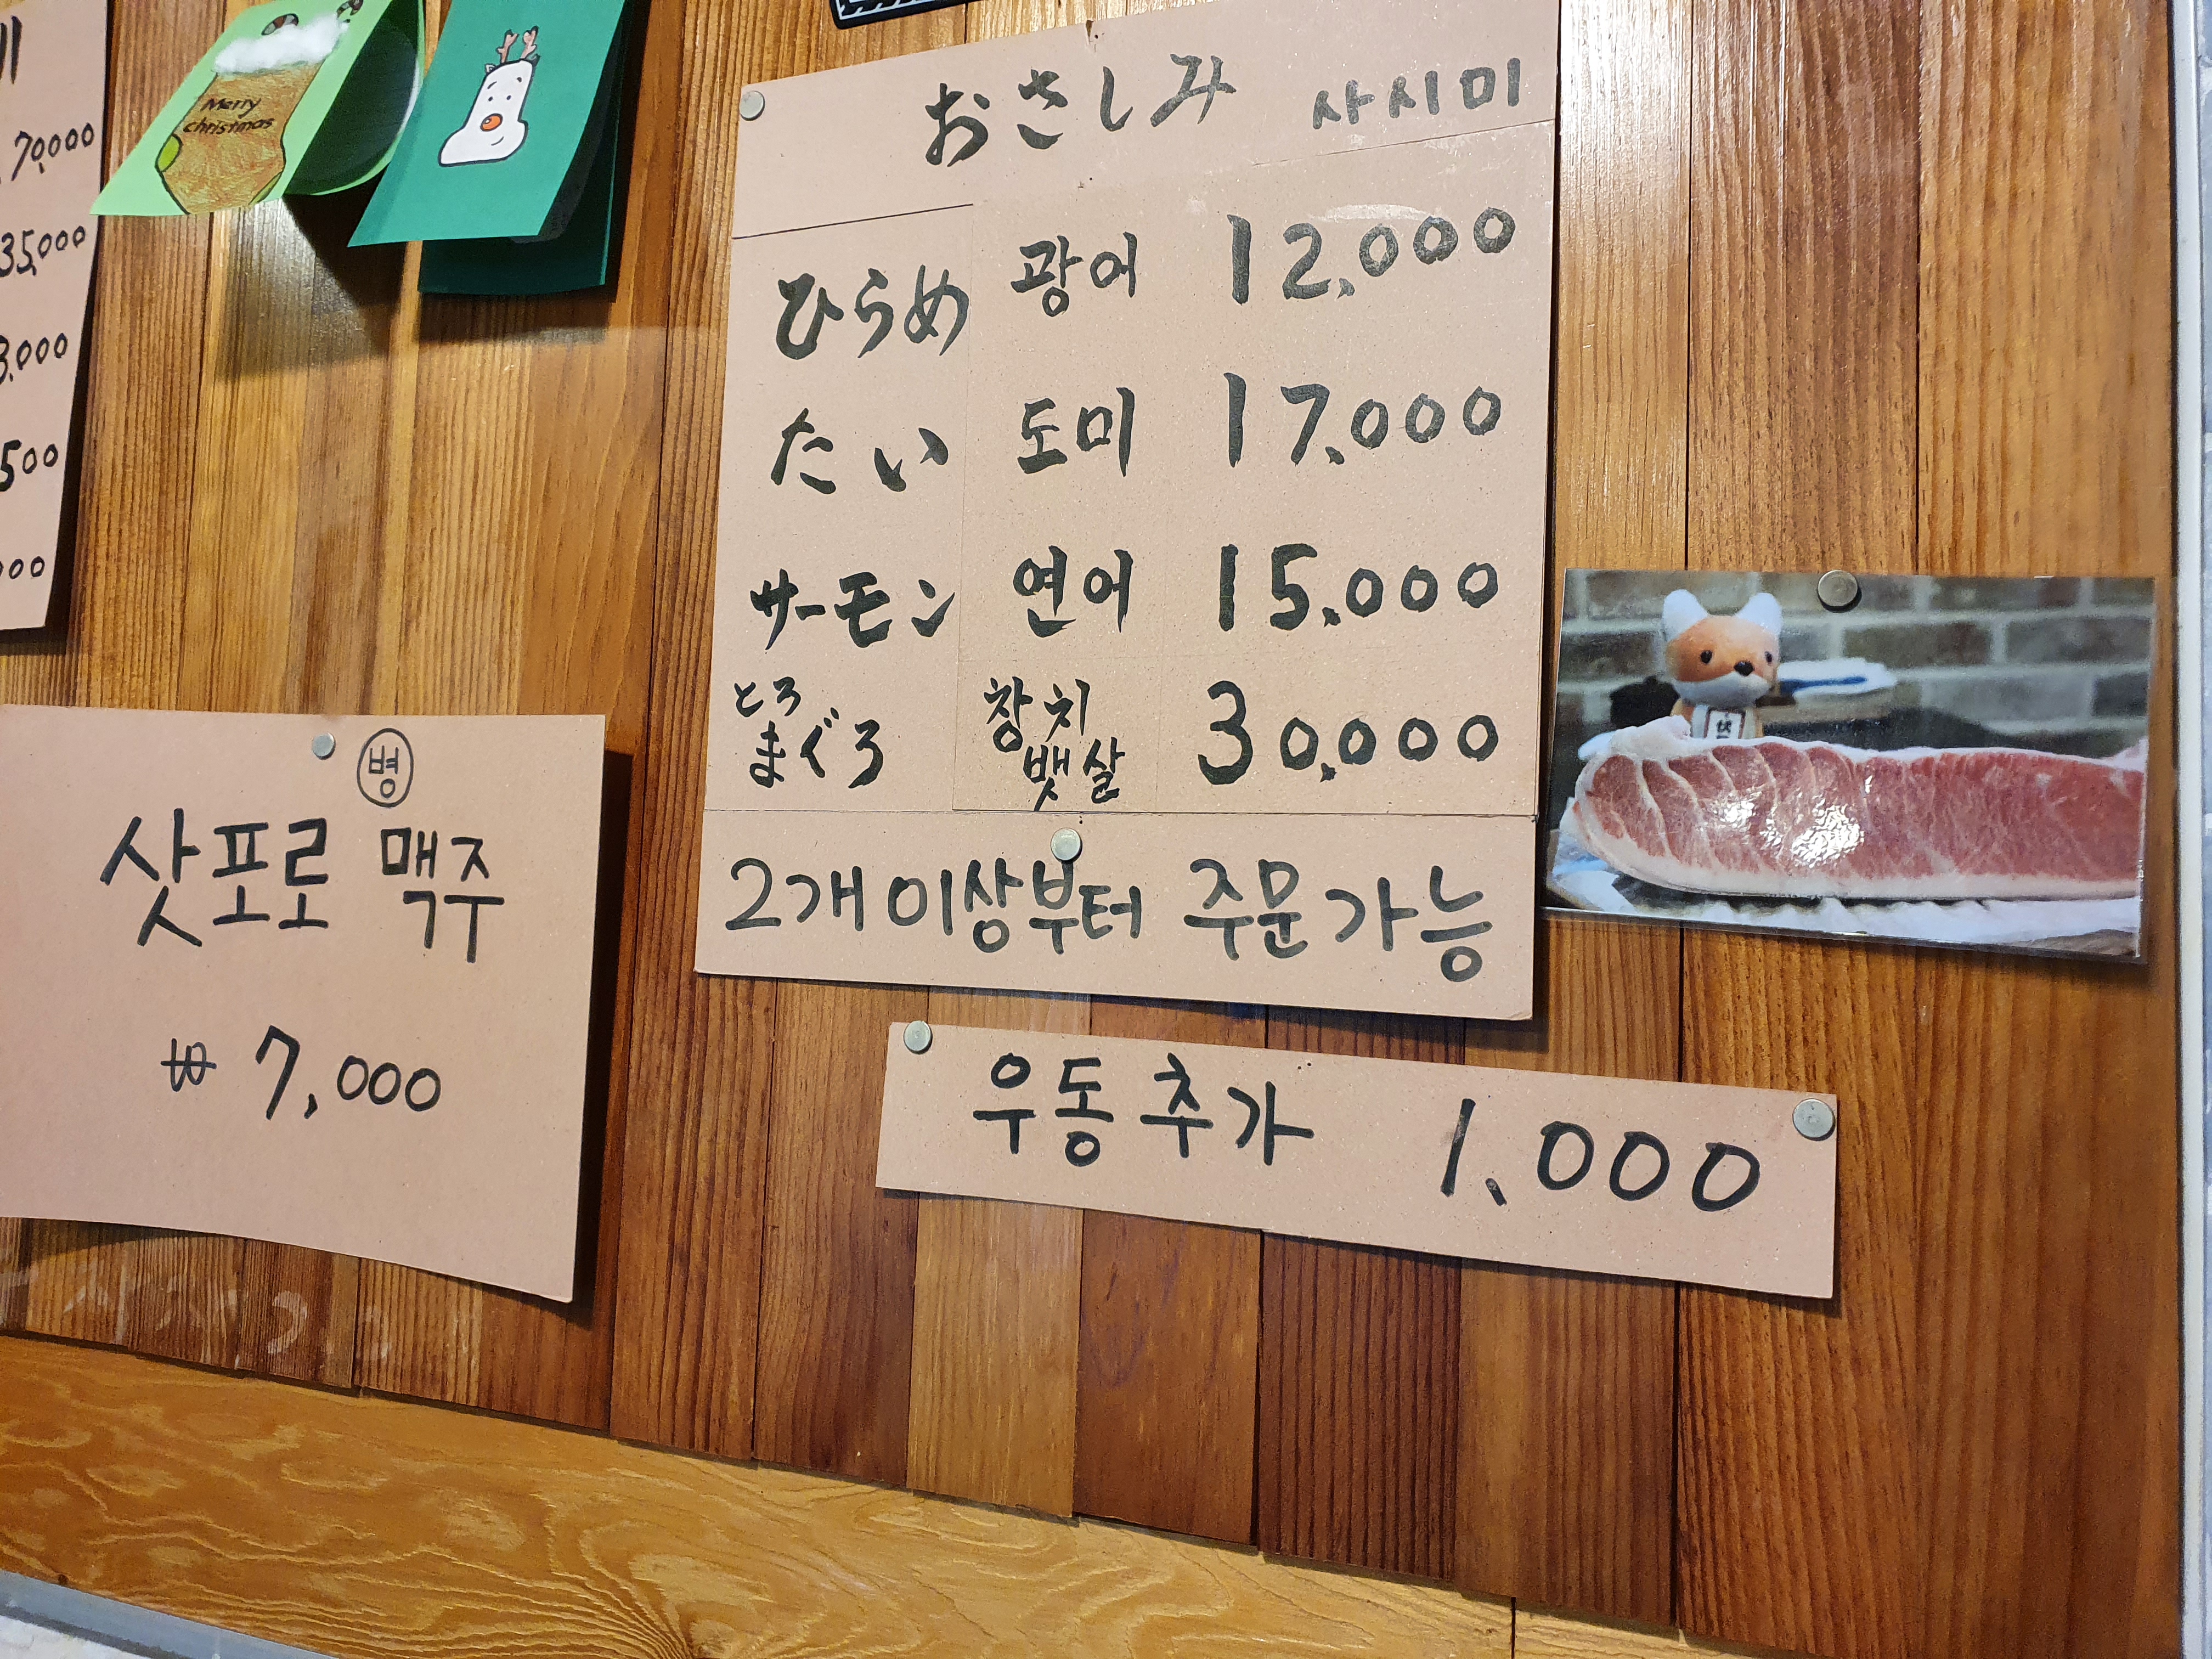 70,000
35,000
3,000
500
000
Merry
christmas
おさしみ 사시미
ひらめ 광어 12,000
たい 도미 17,000
サーモン 연어 15,000
とろ
まぐろ 참치 뱃살 30,000
2개이상부터 주문가능
병
삿포로 맥주
₩ 7,000
우동추가 1,000